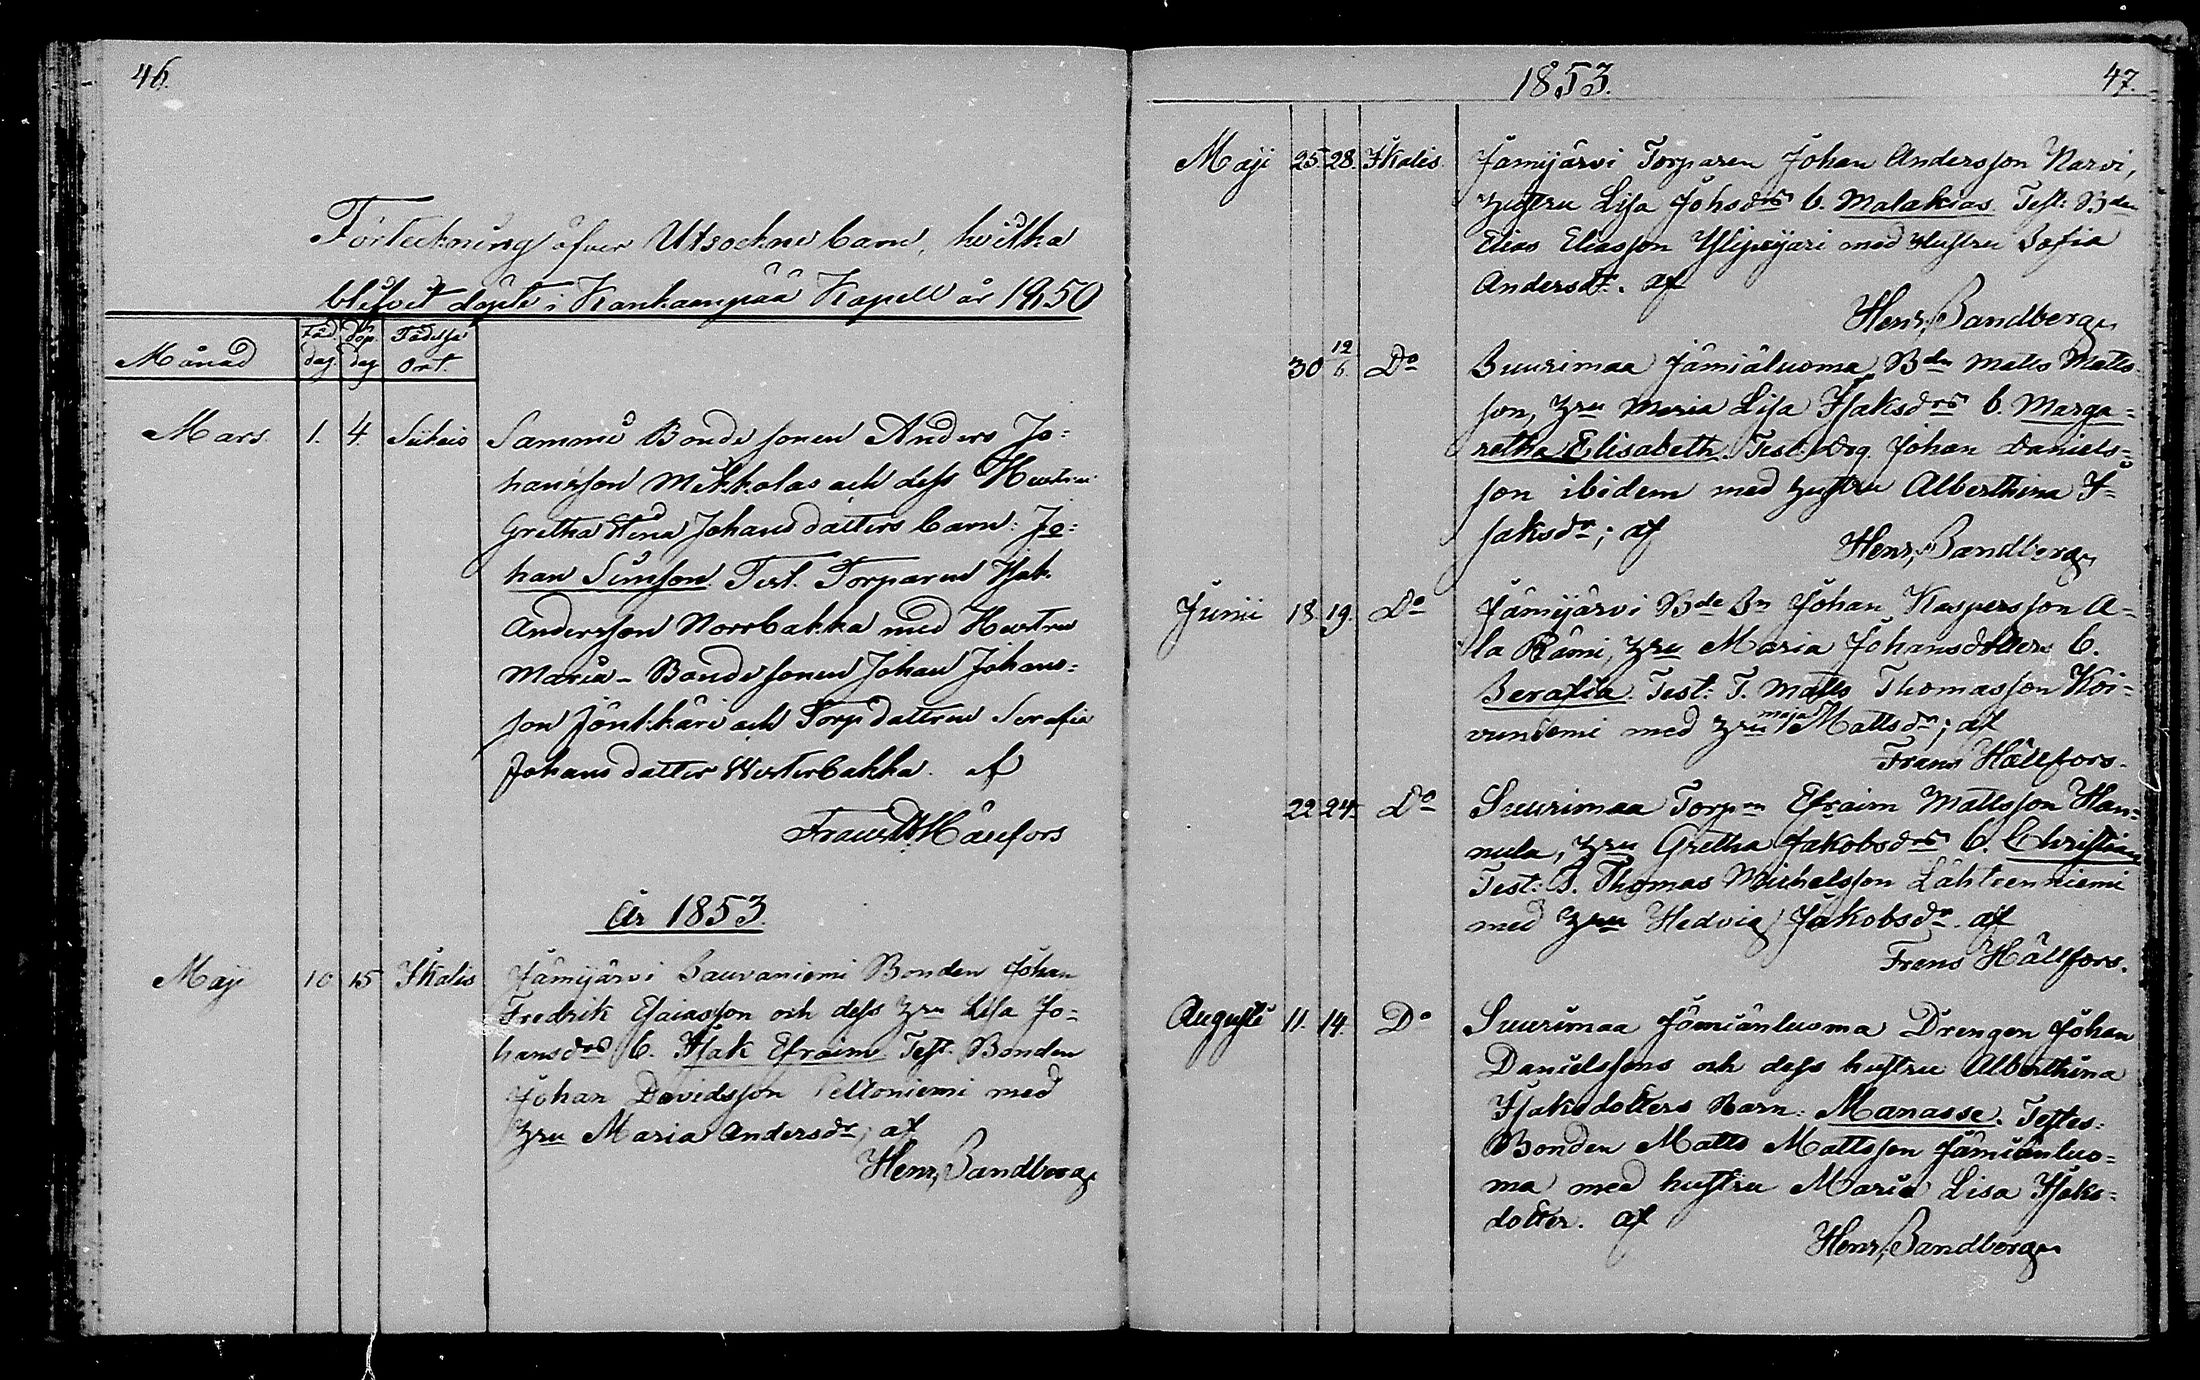 46.
Förteckning öfver Utsockne barn, hvilka
blifvit döpte i Kankaanpää Kapell år 1850
Månad Föd. dag Döp. dag Födelse Ort.
Mars 1. 4. Siikais Sammi Bonde sonen Anders Jo=
hansson Mikkolas och dess Hustru
Gretha Stina Johansdatters barn: Jo=
han Simson. Test. Torparen Isak
Andersson Norrbakka med Hustru
Maria – Bondesonen Johan Johans=
son Jönkkäri och Torp dattren Serafia
Johans datter Westerbakka. af
Frans Hällfors
År 1853.
Maji 10 15 Ikalis Jämijärvi Sauvaniemi Bonden Johan
Fredrik Esaiasson och dess Hru Lisa Jo=
hansdrs b. Isak Efraim Test. Bonden
Johan Davidsson Peltoniemi med
Hru Maria Andersdr; af
Henr. Sandberg
1853. 47.
Maji 25. 28. Ikalis. Jämijärvi Torparen Johan Andersson Narvi,
Hustru Lisa Johsdrs b. Malakias Test: Bden
Elias Eliasson Ylipeijari med Hustru Sofia
Andersdr. af
Henr. Sandberg
30 12/6. Do Suurimaa Jämiäluoma Bdn Matts Matts
son, Hru Maria Lisa Isaksdrs b. Marga=
retha Elisabeth. Test: Drg. Johan Daniels=
son ibidem med Hustru Alberthina I=
saksdr; af
Henr. Sandberg
Junii 18. 19. Do Jämijärvi Bde Sn Johan Kaspersson A=
la Rämi, Hru Maria Johansdotters b.
Serafia. Test: T. Matts Thomasson Koi=
vuniemi med Hru Maja Mattsdr; af
Frans Hällfors.
22 24. Do Suurimaa Torpn Efraim Mattsson Han=
nula, Hru Gretha Jakobsdrs b. Christian
Test: T. Thomas Michelsson Lähteenniemi
med Hru Hedvig Jakobsdr. af
Frans Hällfors.
Augusti 11. 14. Do Suurimaa Jämiänluoma Drengen Johan
Danielssons och dess hustru Alberthina
Isaksdotters Barn: Manasse. Testes:
Bonden Matts Mattsson Jämiänluo=
ma med hustru Maria Lisa Isaks=
dotter. af
Henr. Sandberg